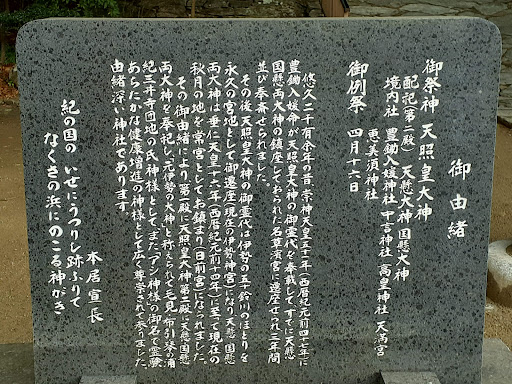 御由緒
御祭神 天照皇大神
配祀(第二殿) 天懸大神 国懸大神
境内社 豊鋤入姫神社 中言神社 高皇神社 天満宮
恵美須神社
御例祭 四月十六日
悠久二千有余年の昔、崇神天皇五十一年(西暦紀元前四十七年)に
豊鋤入姫命が天照皇大神の御霊代を奉戴して、すでに天懸
国懸両大神の鎮座しておられた名草濱宮に遷座せられ三年間
並び奉斎せられました。
その後天照皇大神の御霊代は伊勢の五十鈴川のほとりを
永久の宮地として御遷座(現在の伊勢神宮)になり天懸国懸
両大神は垂仁天皇十六年(西暦紀元前十四年)に至って現在の
秋月の地を常宮としてお鎮まり(日前宮)になられました。
その御由緒により第一殿に天照皇大神第二殿に天懸国懸
両大神を奉祀し、元伊勢の大神と称えられて毛見、布引、琴の浦
紀三井寺団地の氏神様として、また「アシ神様」の御名で霊験
あらたかな健康増進の神様として広く尊崇されて参りました
由緒深い神社であります。
紀の国の いせにうつりし跡ふりて
なくさの浜にのこる神がき
本居宣長